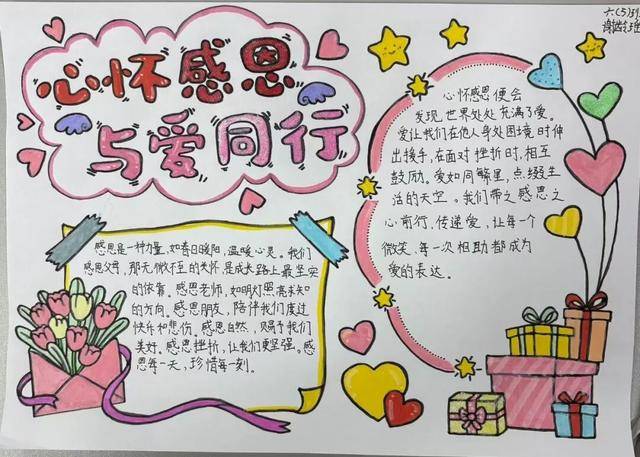 六(5)班
心怀感恩
与爱同行
心怀感恩便会
发现,世界处处充满了爱。
爱让我们在他人身处困境时伸
出援手,在面对挫折时,相互
鼓励。爱如同繁星,点缀生
活的天空。我们带之感恩之
心前行,传递爱,让每一个
微笑、每一次相助都成为
爱的表达。
感恩是一种力量,如春日暖阳,温暖心灵。我们
感恩父母,那无微不至的关怀,是成长路上最坚实
的依靠。感恩老师,如明灯照亮未知
的方向。感恩朋友,陪伴我们度过
快乐和悲伤。感恩自然,赐予我们
美好。感恩挫折,让我们更坚强。感
恩每一天,珍惜每一刻。